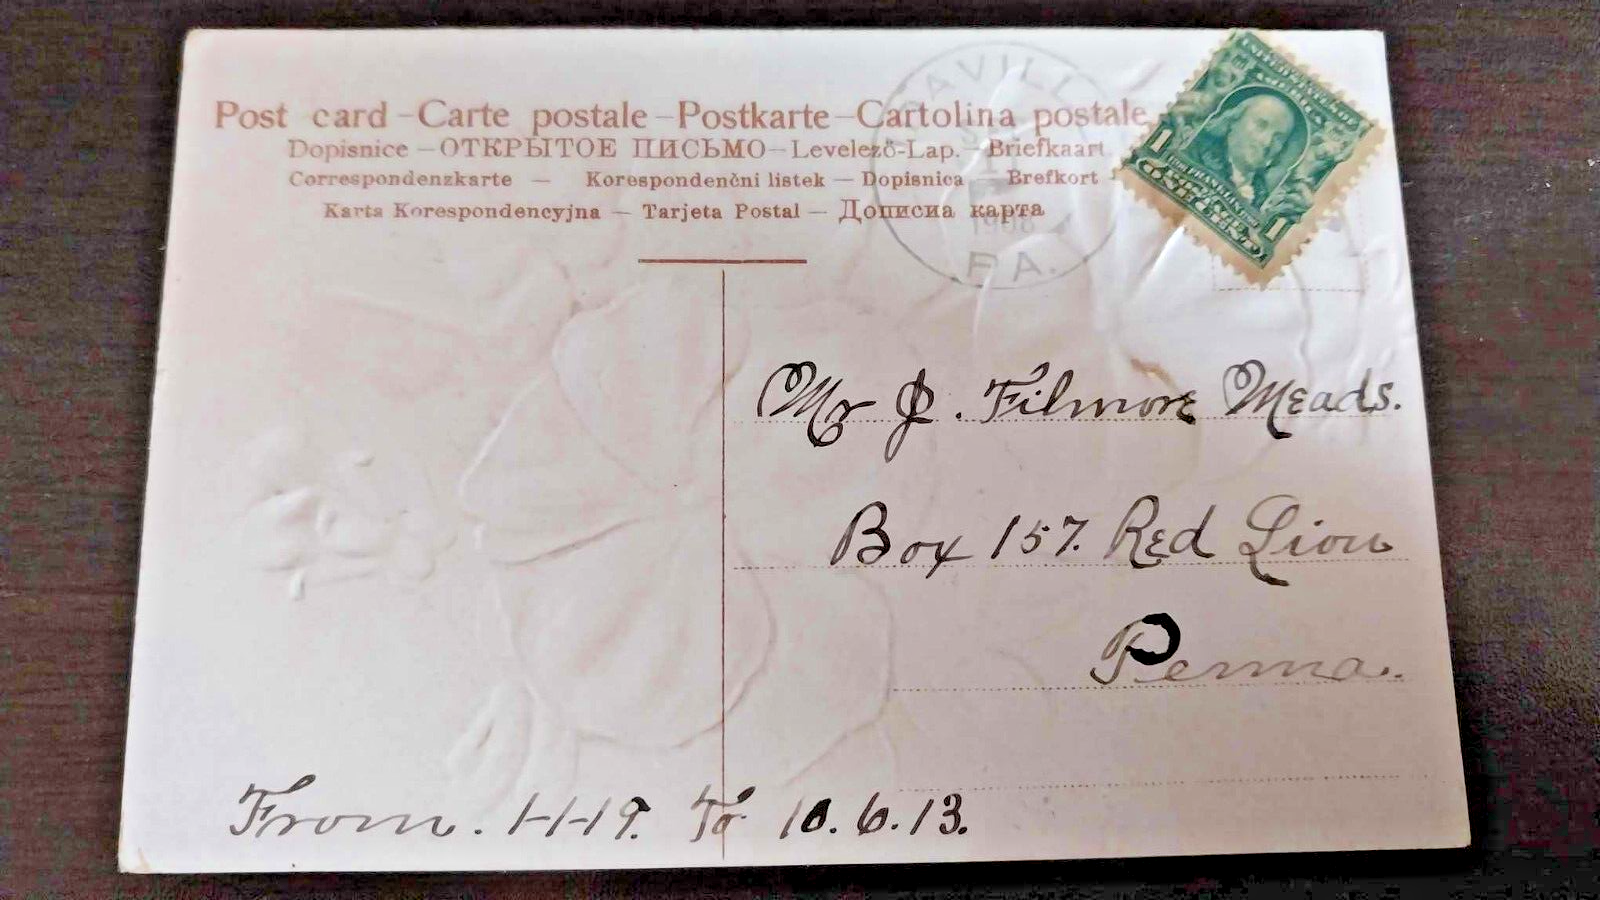 Post card – Carte postale – Postkarte – Cartolina postale
Dopisnice – ОТКРЫТОЕ ПИСЬМО – Levelező-Lap. – Briefkaart
Correspondenzkarte – Korespondenční listek – Dopisnica – Brefkort
Karta Korespondencyjna – Tarjeta Postal – Дописна карта
1908
PA.
1 ONE CENT 1
Mr J. Filmore Meads.
Box 157. Red Lion
Penna.
From. 1-1-19. To. 10.6.13.